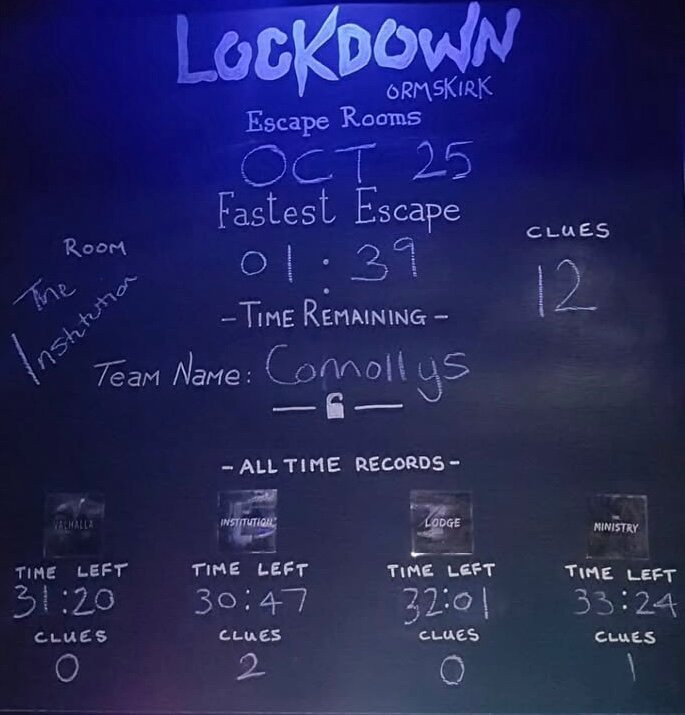 LOCKDOWN
ORMSKIRK
Escape Rooms
OCT 25
Fastest Escape
ROOM
The
Institution
01:39
CLUES
12
-TIME REMAINING-
TEAM NAME: Connollys
-ALL TIME RECORDS-
VALHALLA
INSTITUTION
LODGE
MINISTRY
TIME LEFT
TIME LEFT
TIME LEFT
TIME LEFT
31:20
30:47
32:01
33:24
CLUES
CLUES
CLUES
CLUES
0
2
0
1